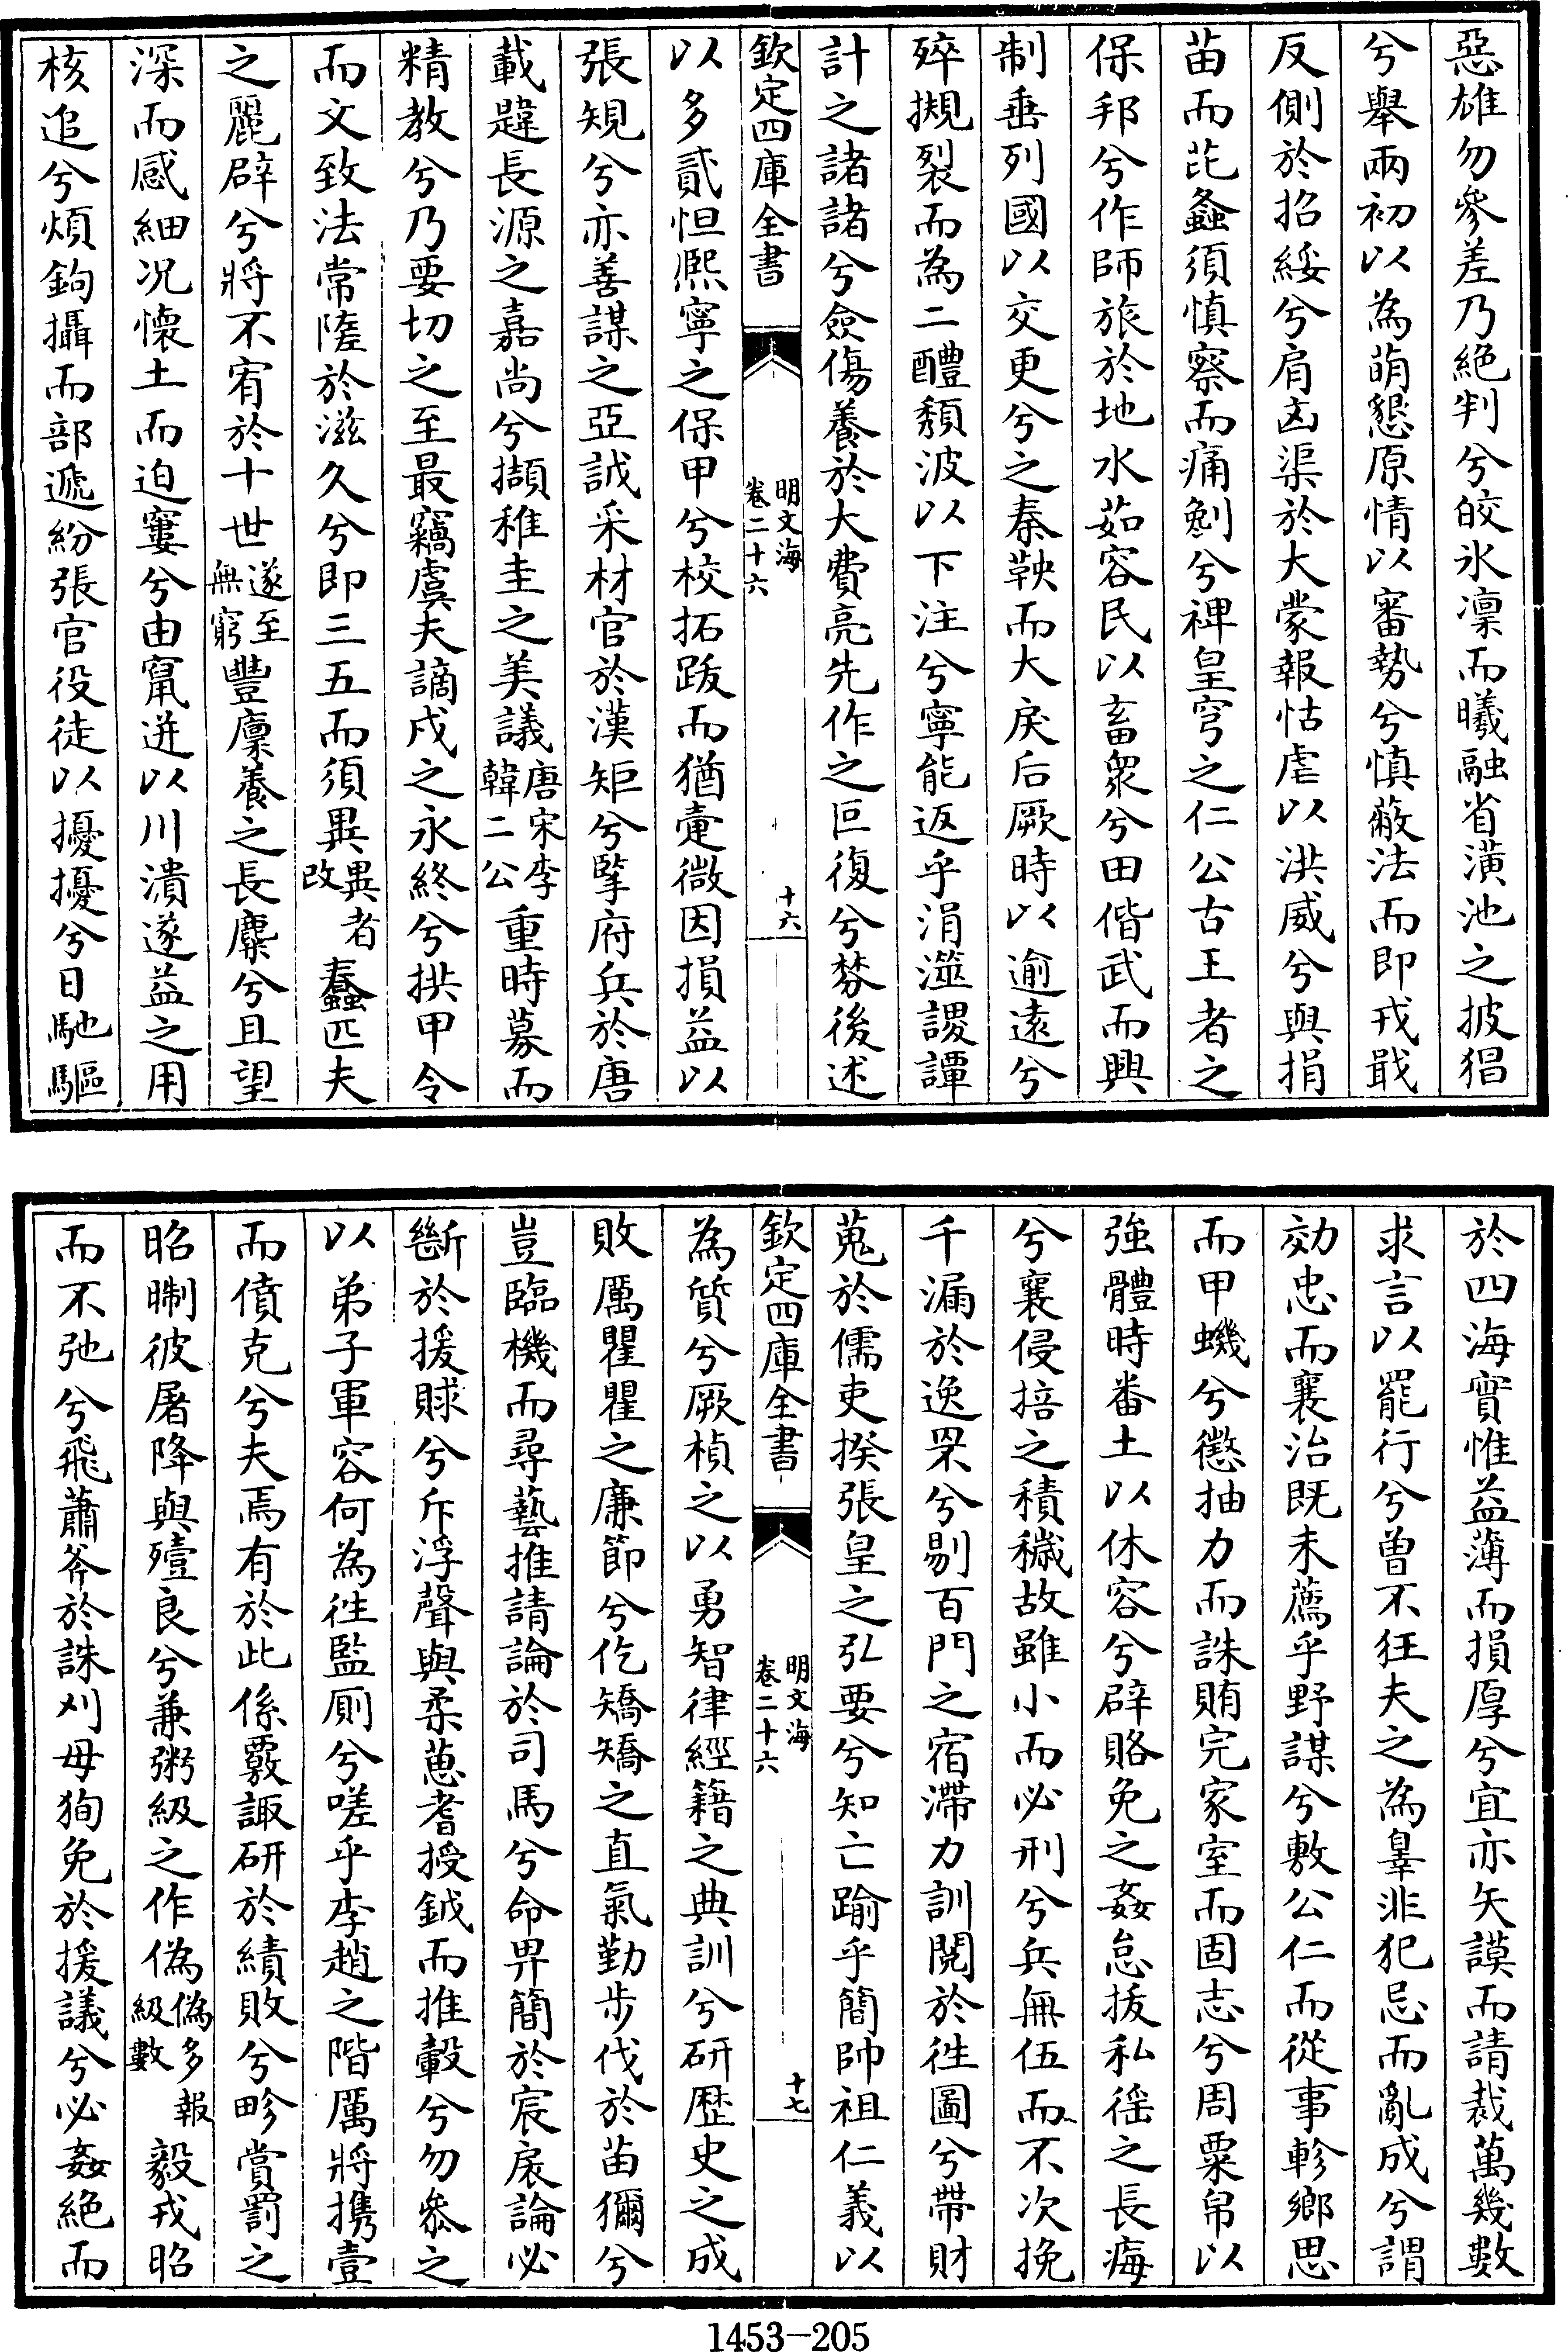 惡雄勿參差乃絕判兮皎氷凛而曦融省潢池之披猖
兮舉兩初以為萌懇原情以審勢兮慎蔽法而即戎戢
反側於招綏兮肩凶渠於大蒙報怙虐以洪威兮與捐
苗而芘螽須慎察而痛劊兮禆皇穹之仁公古王者之
保邦兮作師旅於地水茹容民以畜衆兮田偕武而興
制垂列國以交更兮之秦鞅而大戾后厥時以逾遠兮
殚摫裂而為二醴頽波以下注兮寧能返乎涓澨謖譚
計之諸諸兮僉傷養於大費亮先作之叵復兮棼後述
欽定四庫全書
明文海
卷二十六
十六
以多貳怛熈寧之保甲兮校拓跋而猶疐微因損益以
張規兮亦善謀之亞誠采材官於漢矩兮擥府兵於唐
載韙長源之嘉尚兮擷稚圭之美議唐宋李韓二公重時募而
精教兮乃要切之至最竊虞夫謫戍之永終兮拱甲令
而文致法常隆於滋久兮即三五而須異異者改蠢匹夫
之麗辟兮將不宥於十世遂至無窮豐廩養之長麋兮且望
深而感細况懷土而迫窶兮由竄迸以川潰遂益之用
核追兮煩鉤攝而部遞紛張官役徒以擾擾兮日馳驅
於四海實惟益薄而損厚兮宜亦矢謨而請裁萬幾數
求言以罷行兮曽不狂夫之為辠非犯忌而亂成兮謂
効忠而襄治既未薦乎野謀兮敷公仁而從事軫鄉思
而甲蟣兮懲抽力而誅賄完家室而固志兮周粟帛以
強體時番土以休容兮辟賂免之姦怠拔私徭之長痗
兮襄侵掊之積穢故雖小而必刑兮兵無伍而不次挽
千漏於逸罘兮剔百門之宿滯力訓閱於徃圖兮帶財
蒐於儒吏揆張皇之弘要兮知亡踰乎簡帥祖仁義以
欽定四庫全書
明文海
卷二十六
十七
為質兮厥楨之以勇智律經籍之典訓兮研歴史之成
敗厲瞿瞿之廉節兮仡矯矯之直氣勤步伐於苗獮兮
豈臨機而尋藝推請論於司馬兮命畀簡於宸扆論必
斷於援賕兮斥浮聲與柔葸耆授鉞而推轂兮勿叅之
以弟子軍容何為徃監厠兮嗟乎李趙之階厲將携壹
而僨克兮夫焉有於此係覈諏研於績敗兮畛賞罰之
昭晣彼屠降與殪良兮兼粥級之作偽偽多報級數毅戎昭
而不弛兮飛蕭斧於誅刈毋狥免於援議兮必姦絕而
1453—205